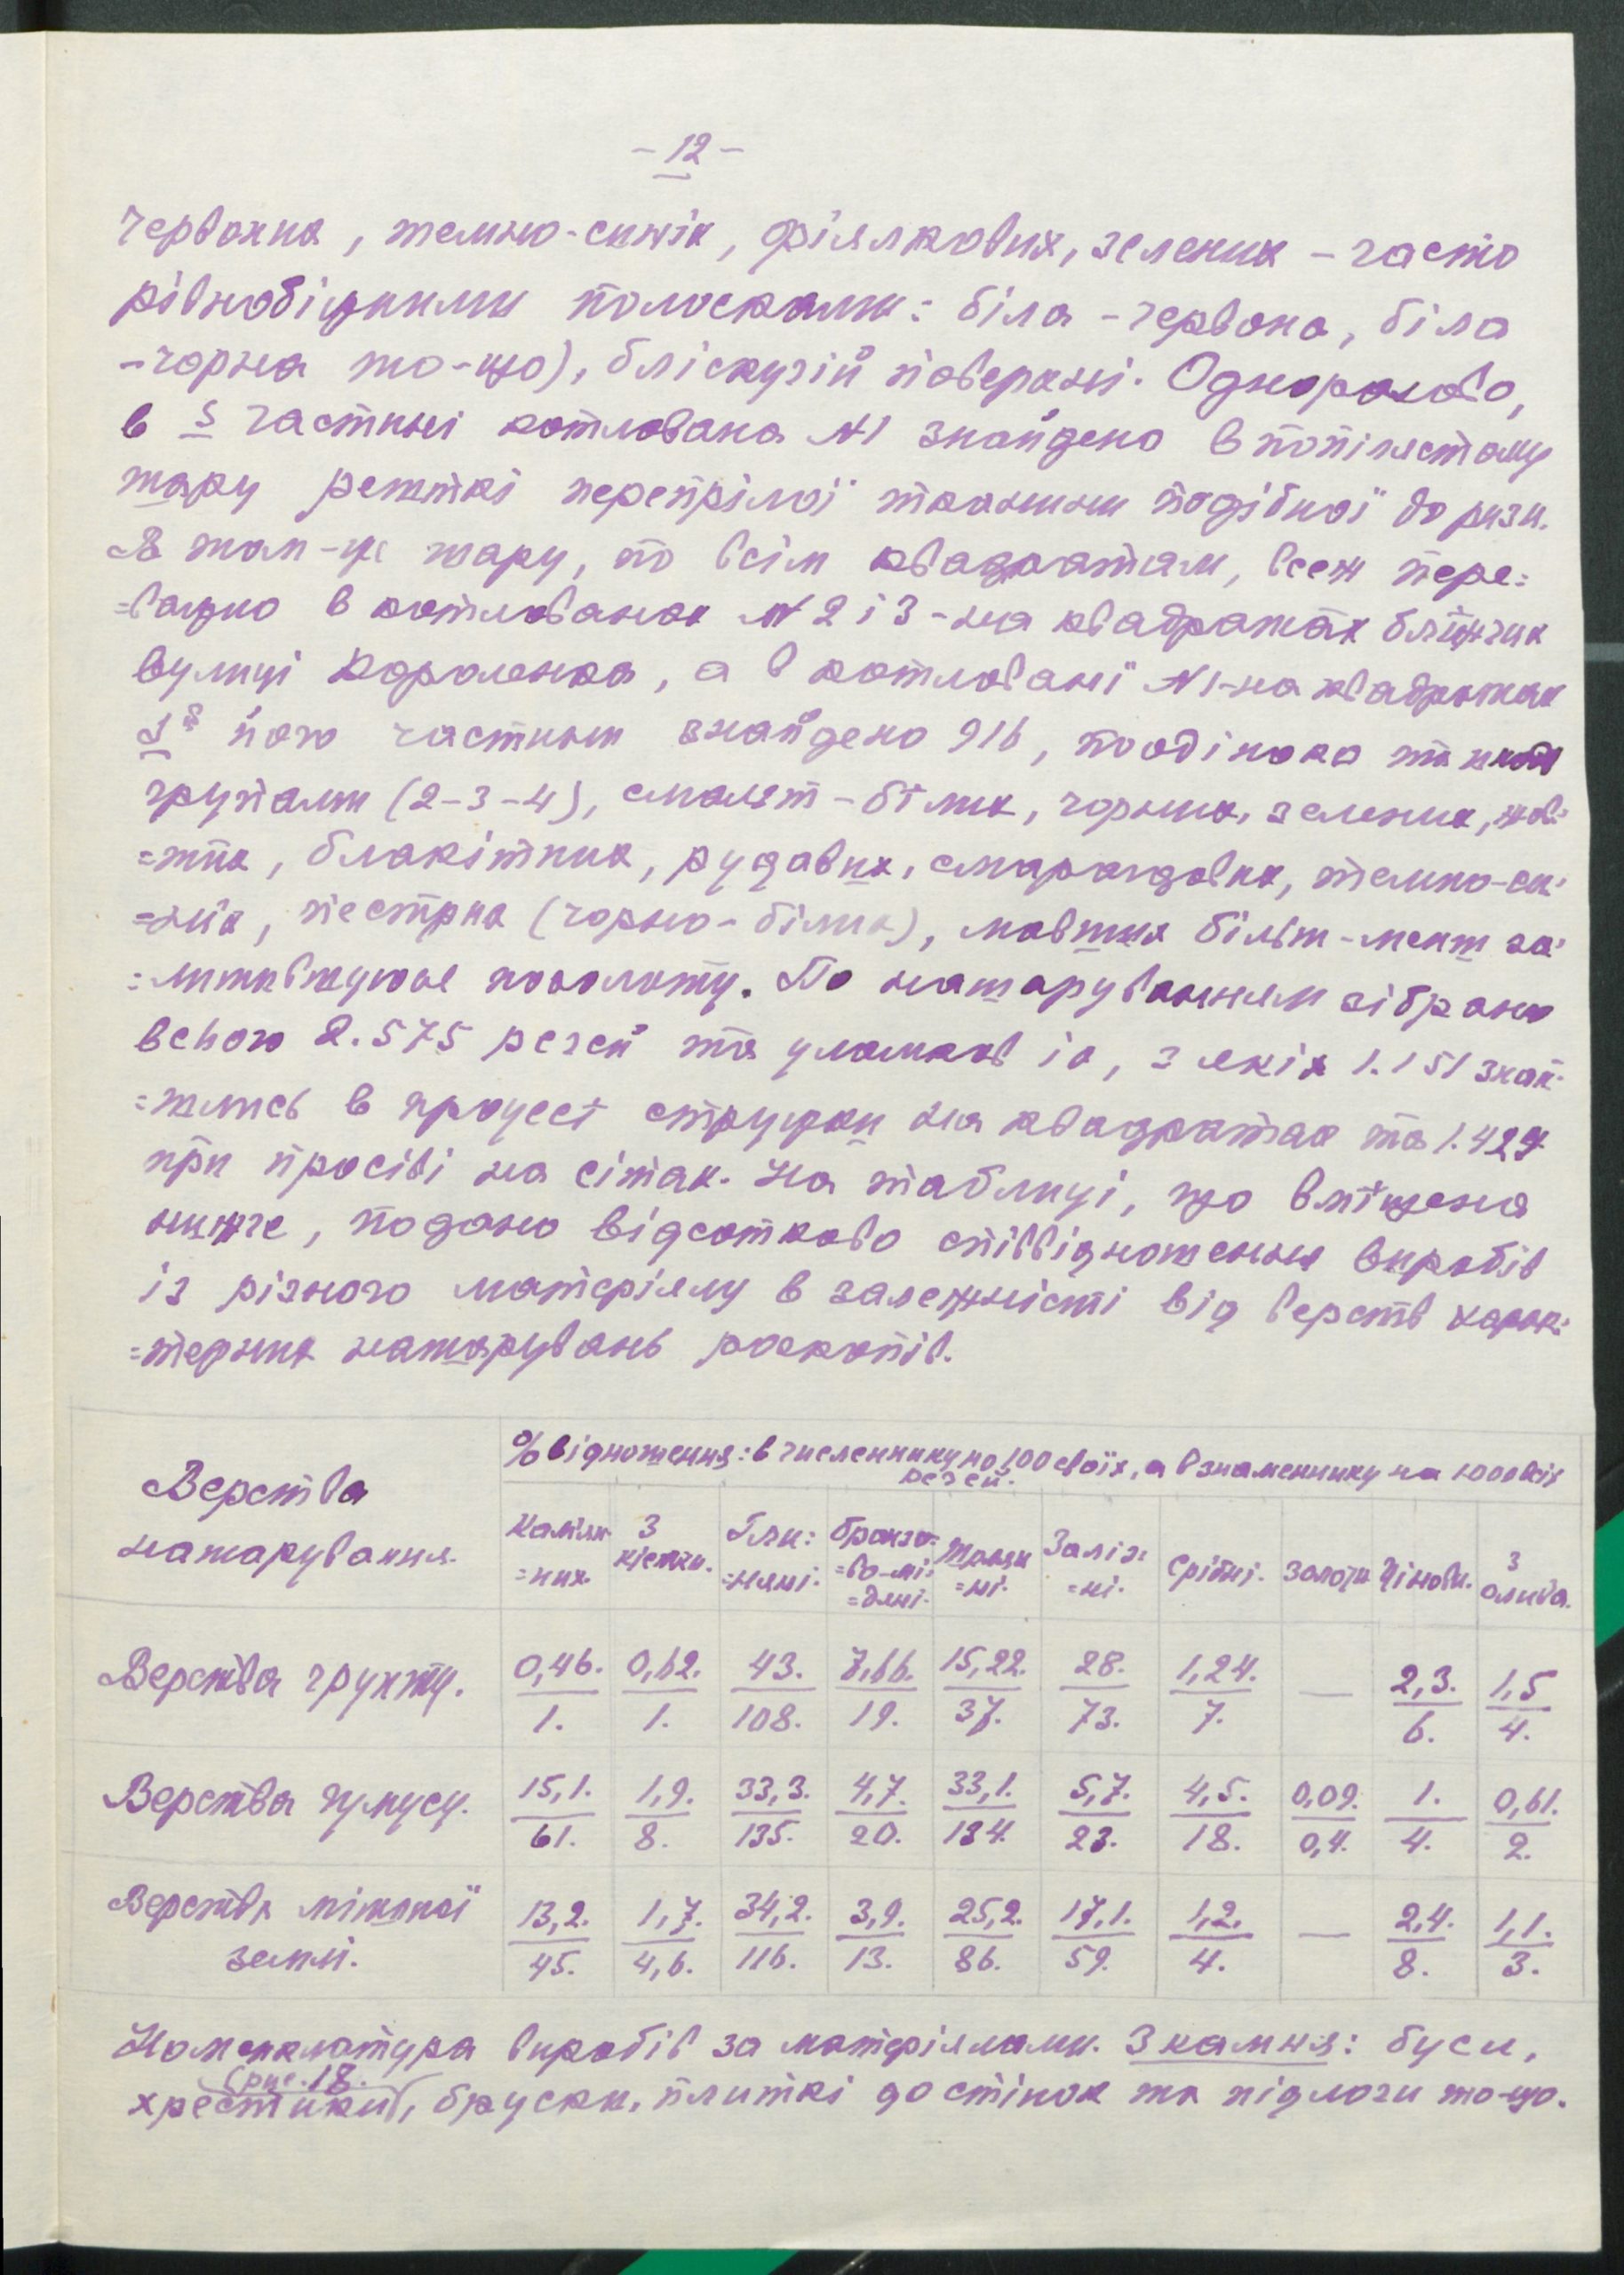 - 12 -
червоних, темно-синіх, фіялкових, зелених - часто
рівнобіжними полосками: біла - червона, біла
- чорна то-що), бліскучій поверхні. Однораково,
в S частині котлована №1 знайдено в попілястому
шару решткі перепрілої тканини подібної до ризи.
В том-же шару, по всім квадратам, всеж пере=
=важно в котлованах №2 і 3 - на квадратах ближчих
вулиці Короленка, а в котловані №1 - на квадратах
S його частини знайдено 916, поодіноко та
групами (2-3-4), смальт - білих, чорних, зелених, жов=
=тих, блакітних, рудавих, смарагдових, темно-си=
=ніх, пестрих (чорно-білих), мавших більш-менш за=
=лишившуюся позолоту. По нашаруванням зібрано
всього 2.575 речей та уламков іх, з якіх 1.151 знай=
=шлись в процесі стружки на квадратах та 1.424
при просіві на сітах. На таблиці, що вміщена
нижче, подано відсотково співвідношення виробів
із різного матеріялу в залежністі від верств харак=
=терних нашарувань роскопів.
Верства нашарування. % відношення: в численнику на 100 своїх, а в знаменнику на 1000 всіх
речей.
Камян=них. З кістки. Гли=няні. Бронзо=во-мі=дяні. Шкля=ні. Заліз=ні. Срібні. Золоти. Цінови. З олива.
Верства грунту. 0,46./1. 0,62./1. 43./108. 7,66./19. 15,22./37. 28./73. 1,24./7. — 2,3./6. 1,5/4.
Верства гумусу. 15,1./61. 1,9./8. 33,3./135. 4,7./20. 33,1./134. 5,7./23. 4,5./18. 0,09./0,4. 1./4. 0,61./2.
Верства мішаної землі. 13,2./45. 1,7./4,6. 34,2./116. 3,9./13. 25,2./86. 17,1./59. 1,2./4. — 2,4./8. 1,1./3.
Номенклатура виробів за матеріялами. З камня: буси,
(рис. 18.
хрестики), бруски, плиткі до стінок та підлоги то-що.